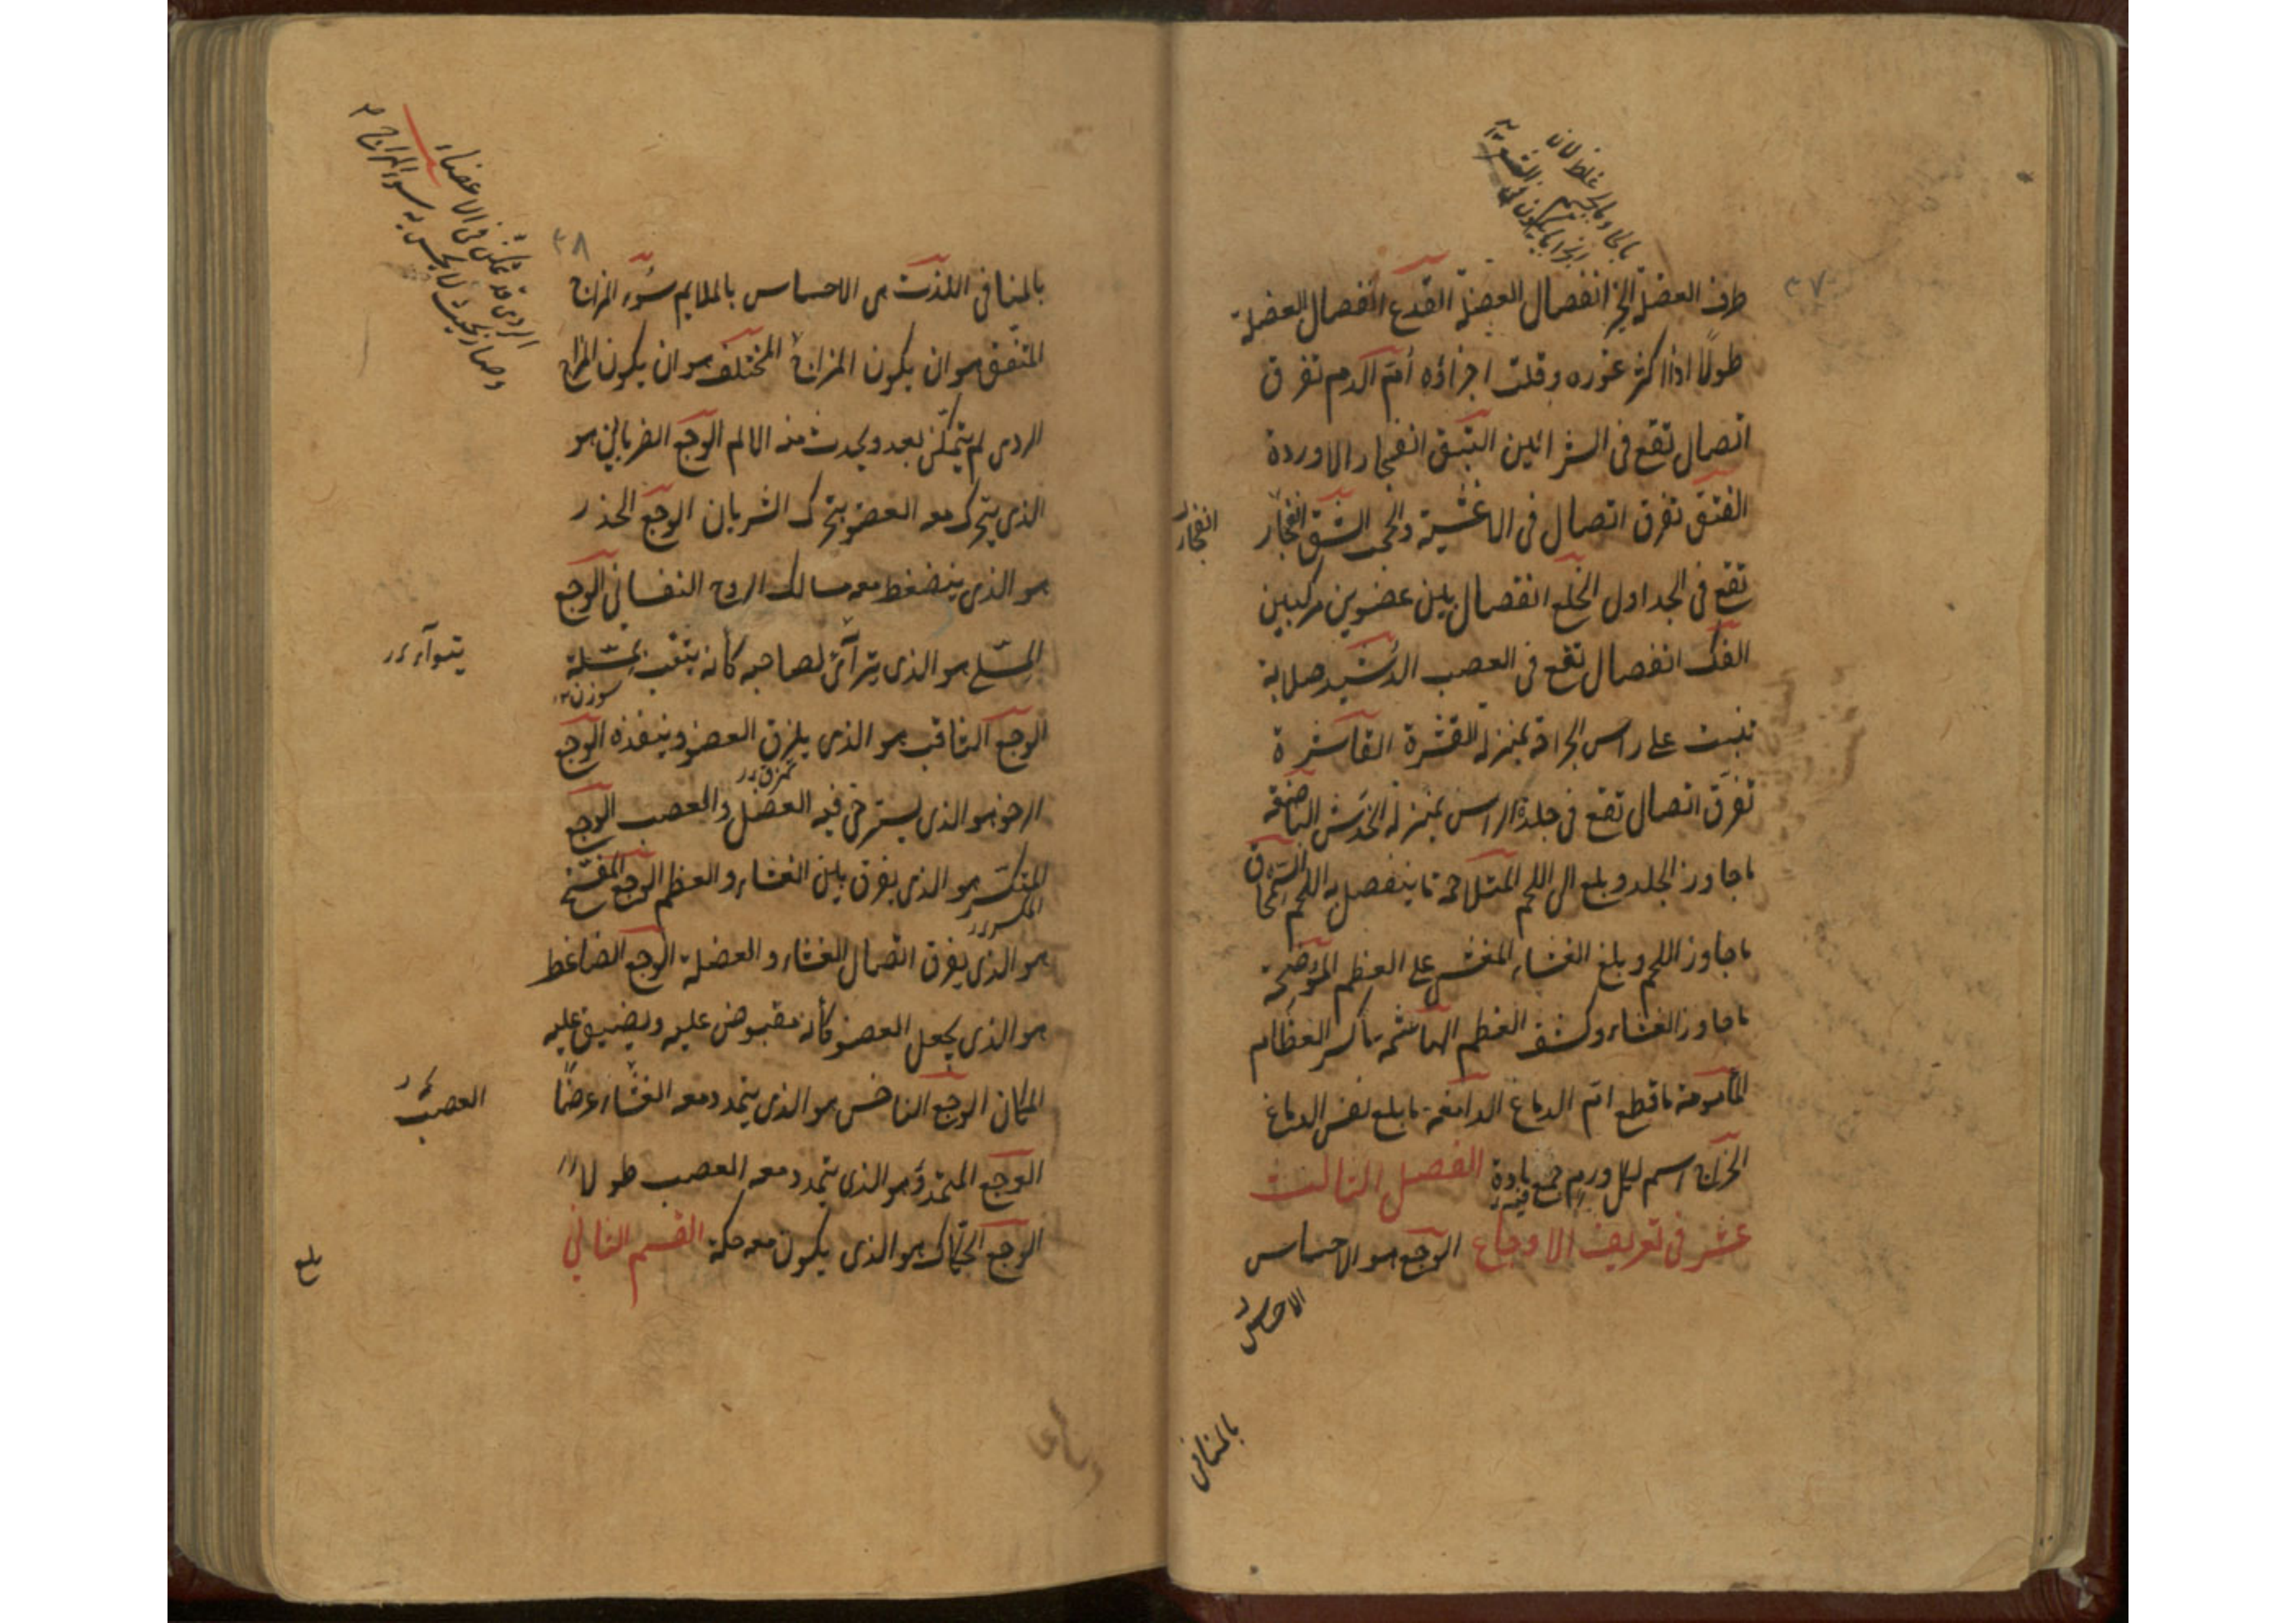 ٣٧
طرف العضلة الجز انفصال العضلة القدع انفصال العضلة
طولًا اذا كثر غوره وقلت اجزاؤه أم الدم تفرق
اتصال تقع فى الشرائين البثق انفجار الاوردة
الفتق تفرق اتصال فى الاغشية والحجب الشق انفجار
انفجار
تقع فى الجداول الخلع انفصال بين عضوين مركبين
الفك انفصال تقع فى العصب الدشبد صلابة
تنبت على راس الجراحة بمنزله القشرة القاشرة
تفرق اتصال تقع فى جلدة الراس بمنزلة الخدش الباضعة
ما جاوز الجلد وبلغ الى اللحم المتلاحمة ما ينفصل به اللحم السمحاق
ما جاوز اللحم وبلغ الغشاء المغشى على العظم الموضحة
ما جاوز الغشاء وكشف العظم الهاشمة ما كسر العظام
المأمومة ما قطع ام الدماغ الدامغة ما بلغ نفس الدماغ
الخراج اسم لكل ورم جمع مادة الفصل الثالث
فيه
عشر فى تعريف الاوجاع الوجع هو الاحساس
الاحساس
بالمنافى
٣٨
الردى قد تمكن فى الاعضاء
وصار بحيث لا يحس به سوء المزاج
بالمنافى اللذت هى الاحساس بالملايم سوء المزاج
المتفق هو ان يكون المزاج المختلف هو ان يكون المزاج
الردى لم يتمكن بعد ويحدث منه الالم الوجع الضربانى هو
الذى يتحرك معه العضو بتحرك الشريان الوجع الخدر
هو الذى ينضغط معه مسالك الروح النفسانى الوجع
المسلى هو الذى يترآئ لصاحبه كأنه يثقب بمسلة
سوزن
الوجع الثاقب هو الذى يلزق العضو وينفذه الوجع
الرخو هو الذى يسترخى فيه العضل والعصب الوجع
المتكسر هو الذى يفرق بين الغشاء والعظم الوجع المفسخ
المكسر
هو الذى يفرق اتصال الغشاء والعضلة الوجع الضاغط
هو الذى يجعل العضو كأنه مقبوض عليه ويضيق عليه
المكان الوجع الناخس هو الذى يتمدد معه الغشاء عرضًا
العصب
الوجع المتمدد هو الذى يتمدد معه العصب طولا
الوجع الحكاك هو الذى يكون معه حكة القسم الثانى
بلغ